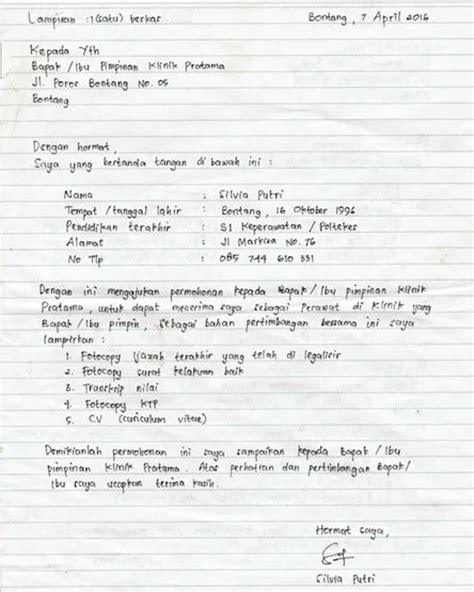 Lampiran : 1 (satu) berkas Bontang, 7 April 2016
Kepada Yth
Bapak / Ibu Pimpinan Klinik Pratama
Jl. Poros Bontang No. 05
Bontang
Dengan hormat,
Saya yang bertanda tangan di bawah ini :
Nama : Silvia Putri
Tempat / tanggal lahir : Bontang, 16 Oktober 1996
Pendidikan terakhir : S1 Keperawatan / Poltekes
Alamat : Jl Markisa No. 76
No Tlp : 085 744 610 331
Dengan ini mengajukan permohonan kepada Bapak / Ibu pimpinan Klinik
Pratama, untuk dapat menerima saya sebagai Perawat di Klinik yang
Bapak / Ibu pimpin, Sebagai bahan pertimbangan bersama ini saya
lampirkan :
1. Fotocopy Ijazah terakhir yang telah di legalisir
2. Fotocopy surat kelakuan baik
3. Transkrip nilai
4 Fotocopy KTP
5. CV (curiculum vitae)
Demikianlah permohonan ini saya sampaikan kepada Bapak / Ibu
pimpinan Klinik Pratama. Atas perhatian dan pertimbangan Bapak/
Ibu saya ucapkan terima kasih.
Hormat saya,
Silvia Putri